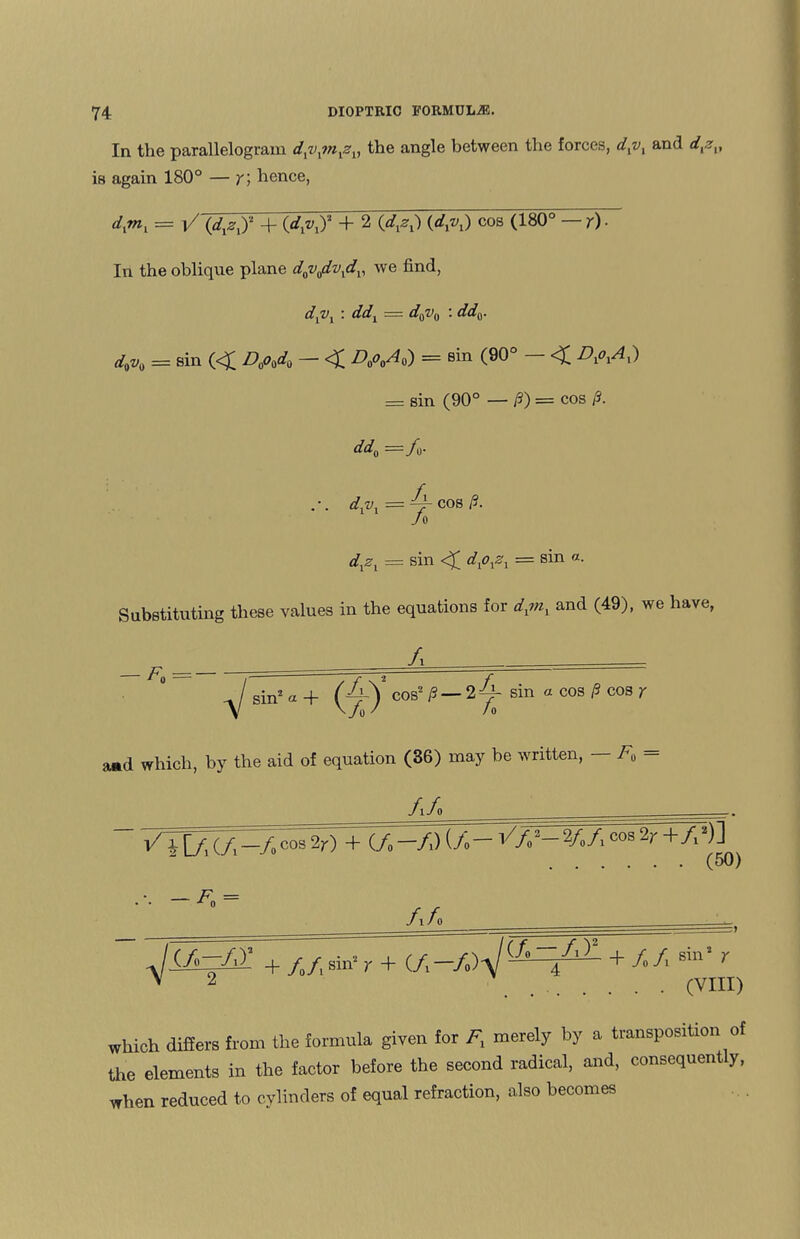 74 DIOPTRIC FORMULÆ.
In the parallelogram d₁v₁m₁z₁, the angle between the forces, d₁v₁ and d₁z₁,
is again 180° — γ; hence,
d₁m₁ = √(d₁z₁)² + (d₁v₁)² + 2 (d₁z₁) (d₁v₁) cos (180° — γ).
In the oblique plane d₀v₀dv₁d₁, we find,
d₁v₁ : dd₁ = d₀v₀ : dd₀.
d₀v₀ = sin (∢ D₀o₀d₀ — ∢ D₀o₀A₀) = sin (90° — ∢ D₁o₁A₁)
= sin (90° — β) = cos β.
dd₀ = f₀.
∴ d₁v₁ = f₁/f₀ cos β.
d₁z₁ = sin ∢ d₁o₁z₁ = sin α.
Substituting these values in the equations for d₁m₁ and (49), we have,
— F₀ = — f₁ / √(sin² α + (f₁/f₀)² cos² β — 2 f₁/f₀ sin α cos β cos γ)
and which, by the aid of equation (36) may be written, — F₀ =
— f₁f₀ / √(½ [f₁ (f₁ — f₀ cos 2γ) + (f₀ — f₁) (f₀ — √(f₀² — 2f₀f₁ cos 2γ + f₁²))]) .
. . . . . . (50)
∴ — F₀ =
— f₁f₀ / √((f₀ — f₁)²/2 + f₀f₁ sin² γ + (f₁ — f₀) √((f₀ — f₁)²/4 + f₀f₁ sin² γ)) ,
. . . . . . . . (VIII)
which differs from the formula given for F₁ merely by a transposition of
the elements in the factor before the second radical, and, consequently,
when reduced to cylinders of equal refraction, also becomes